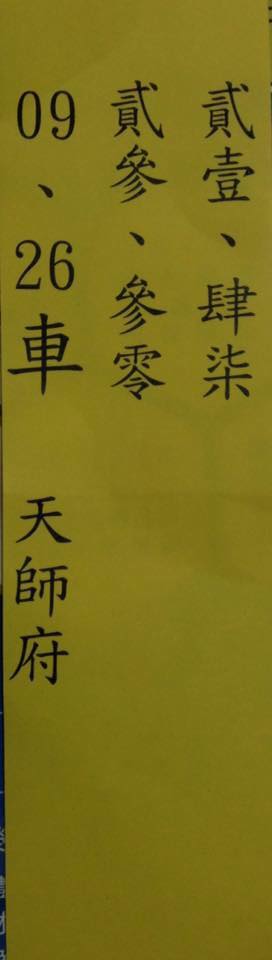 貳壹、肆柒
貳參、參零
09、26車 天師府